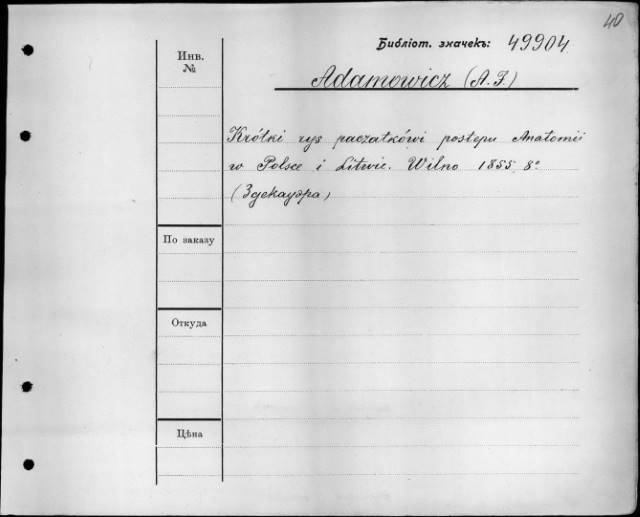 40
Библіот. значекъ: 49904
Инв.
№
Adamowicz (A. F.)
Krótki rys początków i postępu Anatomii
w Polsce i Litwie. Wilno 1855. 8°
(Здекауэра)
По заказу
Откуда
Цѣна